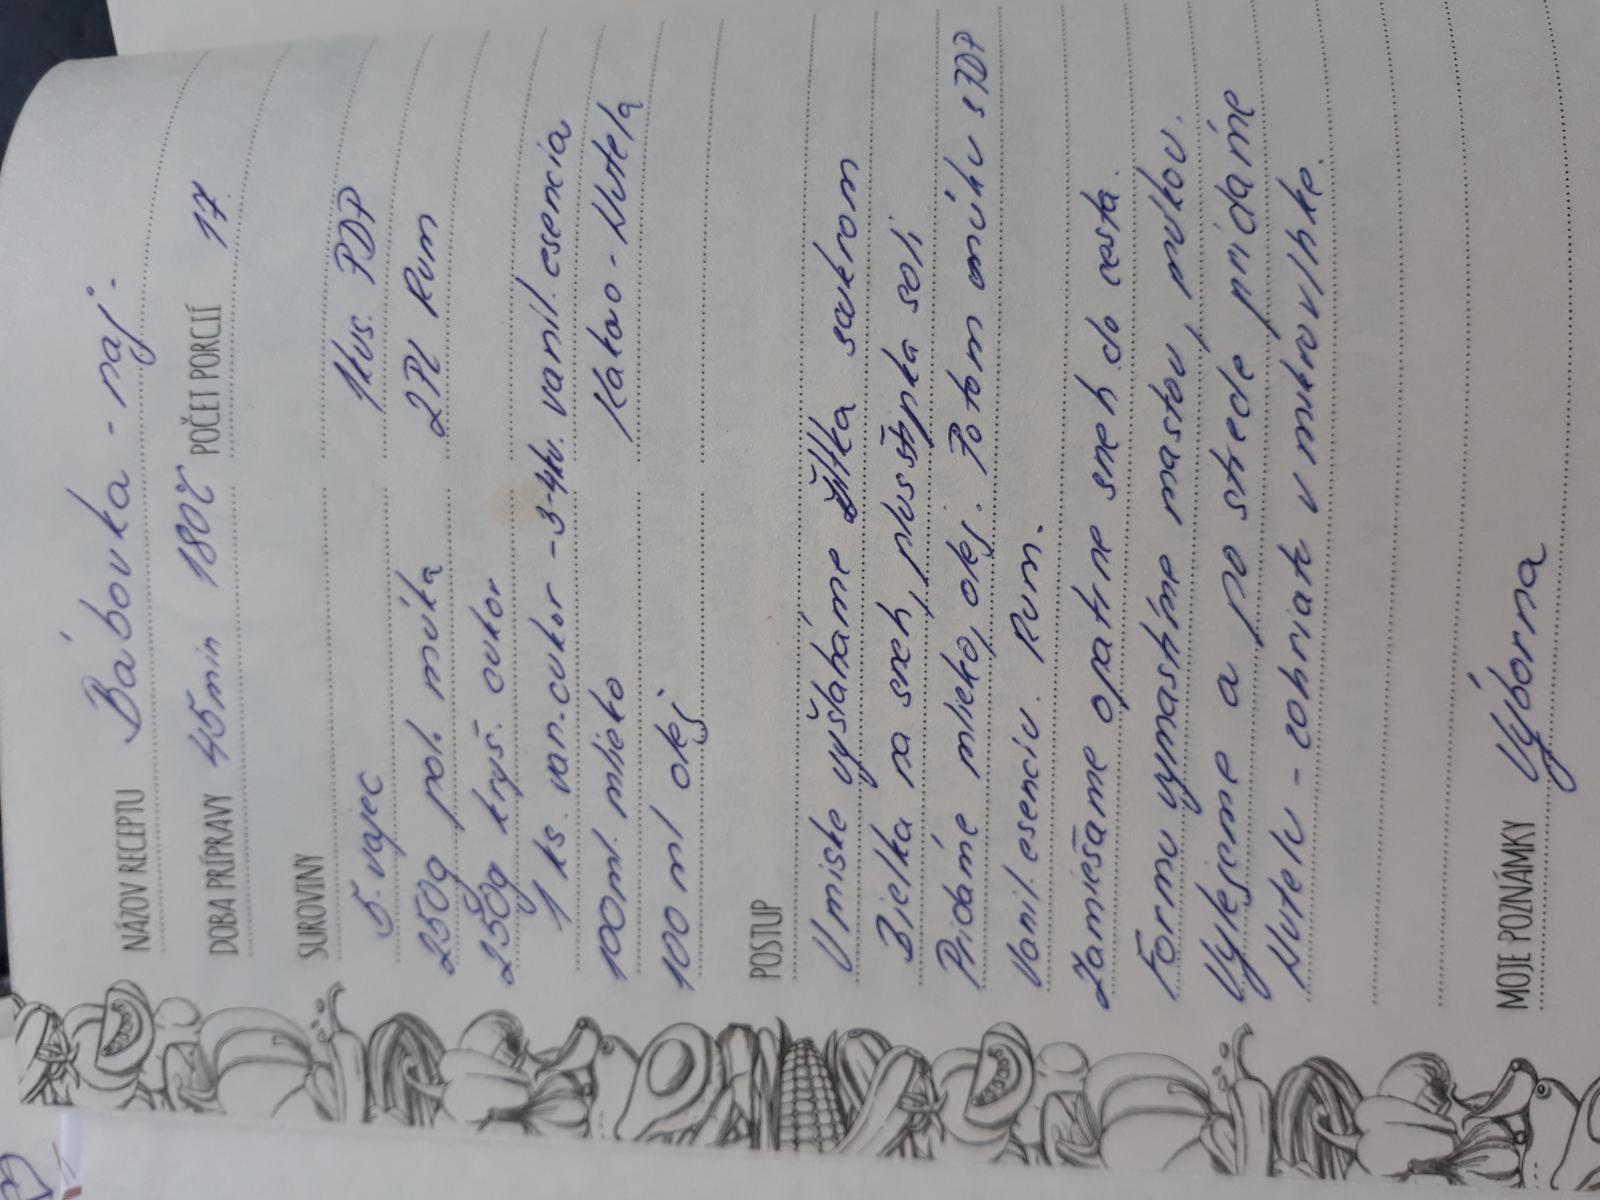 NÁZOV RECEPTU Bábovka - naj.
DOBA PRÍPRAVY 45min 180℃ POČET PORCIÍ 17.
SUROVINY
5. vajec 1kus. PDP
250g pol. múka 2PL Rum
250g kryš. cukor
1 ks. van. cukor - 3-4kv. vanil. esencia
100ml. mlieko Kakao - Nutela
100 ml olej
POSTUP
V miske vyšľaháme žĺtka s cukrom
Bielka na sneh, plus štipka soli
Pridáme mlieko, olej. Potom múku s PDP
Vanil. esenciu. Rum.
Zamiešame opatrne sneh do cesta.
Formu vymastíme masťou, múkou.
Vylejeme a po strede pridáme
Nutelu - zohriať v mikrovlnke.
MOJE POZNÁMKY Výborná